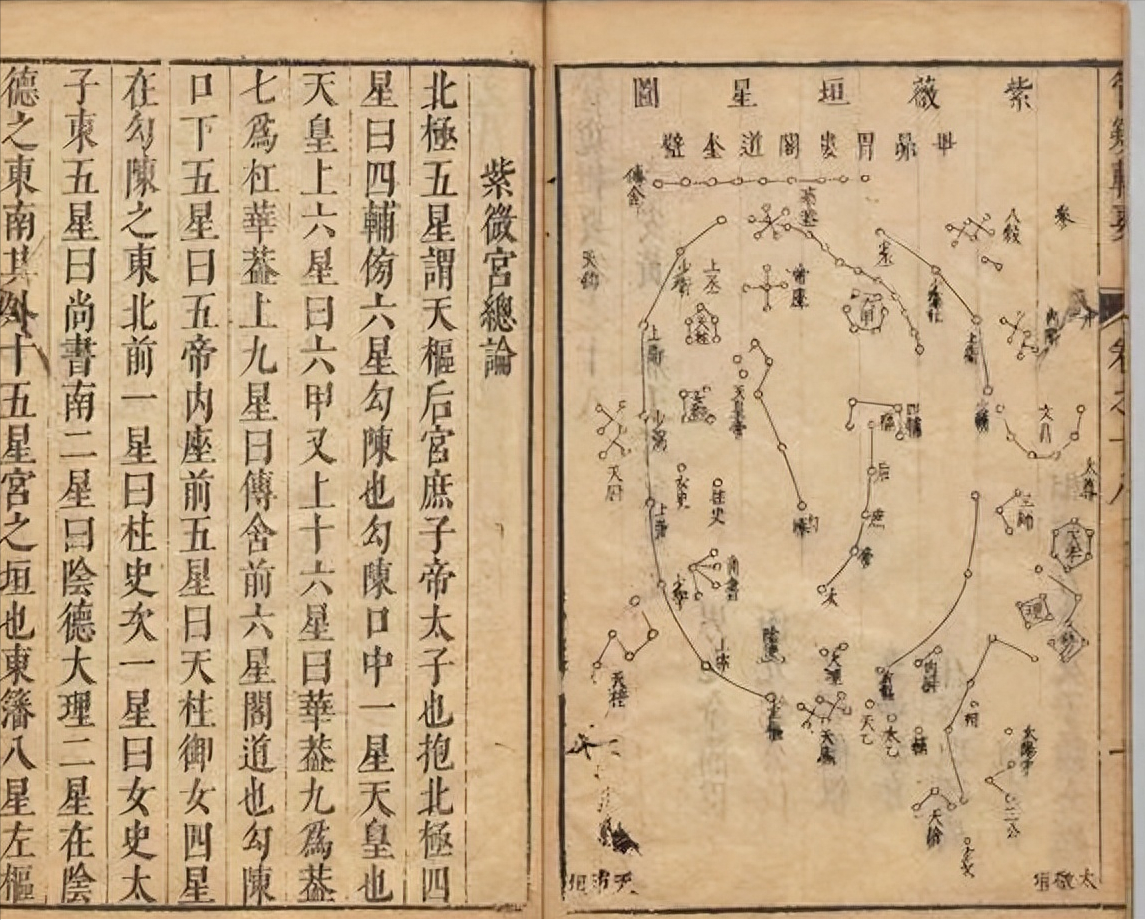 紫薇垣星圖
畢昴胃婁閣道奎壁
傳舍
八穀
參
少衛
上丞
天柱
六甲
上衛
天皇帝
四輔
后
庶
帝
太
天廚
女史
柱史
文昌
太尊
三師
尚書
少宰
上宰
天棓
陰德
大理
天床
天乙
太乙
內厨
相
太陽守
三公
天槍
天市垣
太微垣
紫微宮總論
北極五星謂天樞后宮庶子帝太子也抱北極四
星曰四輔傍六星勾陳也勾陳口中一星天皇也
天皇上六星曰六甲又上十六星曰華葢九爲葢
七爲杠華葢上九星曰傳舍前六星閣道也勾陳
口下五星曰五帝内座前五星曰天柱御女四星
在勾陳之東北前一星曰柱史次一星曰女史太
子東五星曰尚書南二星曰陰德大理二星在陰
德之東南其外十五星宮之垣也東籓八星左樞